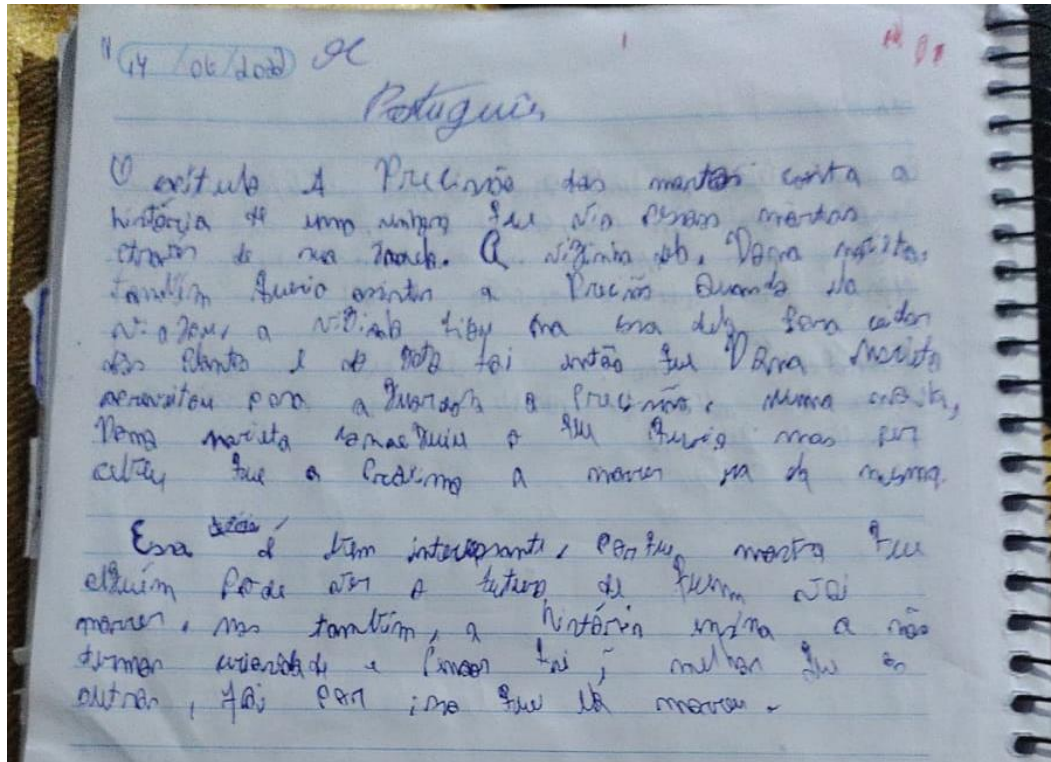 14/06/2022
Português
O capítulo A Procissão dos mortos conta a
história de uma que via pessoas mortas
através de sua janela. A vizinha dela, Dona Marieta,
também queria assistir a Procissão Quando ela
viajou, a vizinha ficou na casa dela para cuidar
das plantas e do gato foi então que Dona Marieta
aproveitou para a a Procissão, numa
Dona Marieta o que queria mas per
cebeu que a Próxima a morrer era ela mesma.
Essa é bem interessante, Porque mostra que
alguém Pode ver o futuro de quem vai
morrer, mas também, a história ensina a não
termos curiosidade e é melhor que os
outros, foi por isso que ela morreu.